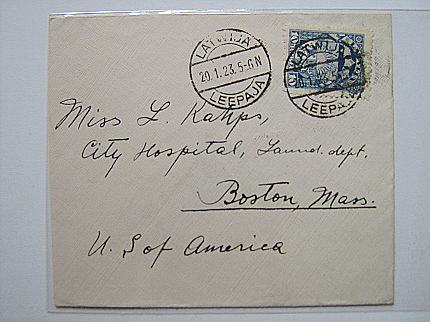 LATWIJA
20.1.23.5-6N
LEEPAJA
LATWIJA
LEEPAJA
Miss L. Kahps,
City Hospital, Laund. dept.
Boston, Mass.
U. S of America